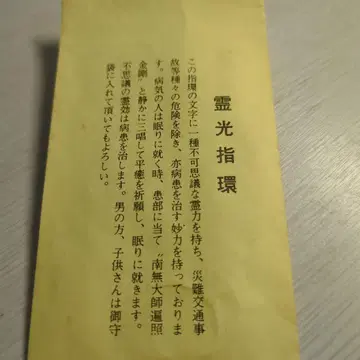 霊光指環
この指環の文字に一種不可思議な霊力を持ち、災難交通事
故等種々の危険を除き、亦病患を治す妙力を持っておりま
す。病気の人は眠りに就く時、患部に当て〝南無大師遍照
金剛〟と静かに三唱して平癒を祈願し、眠りに就きます。
不思議の霊効は病患を治します。男の方、子供さんは御守
袋に入れて頂いてもよろしい。